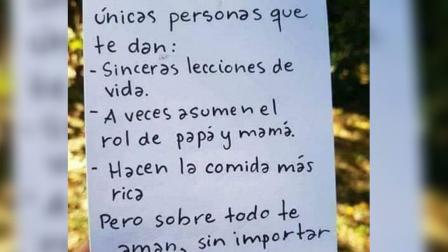 únicas personas que
te dan:
- Sinceras lecciones de
vida.
- A veces asumen el
rol de papá y mamá.
- Hacen la comida más
rica
Pero sobre todo te
aman, sin importar